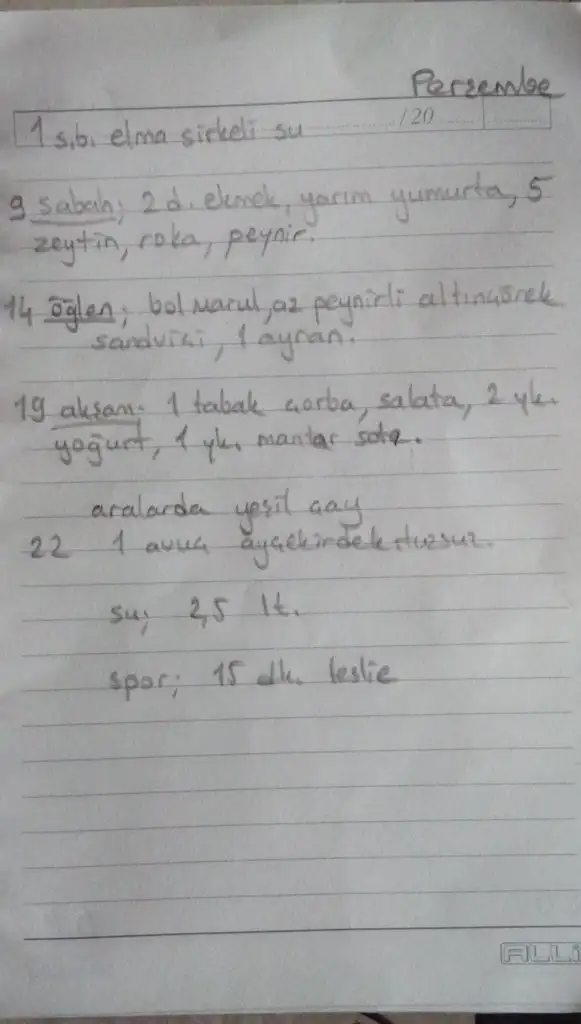 Perşembe
1 s.b. elma sirkeli su /20
9 sabah; 2 d. ekmek, yarım yumurta, 5
zeytin, roka, peynir.
14 öğlen; bol marul, az peynirli altınçörek
sandviçi, 1 ayran.
19 akşam. 1 tabak çorba, salata, 2 yk.
yoğurt, 1 yk. mantar sote.
aralarda yeşil çay
22 1 avuç ayçekirdek, tuzsuz.
su; 2,5 lt.
spor; 15 dk. leslie
ALLi